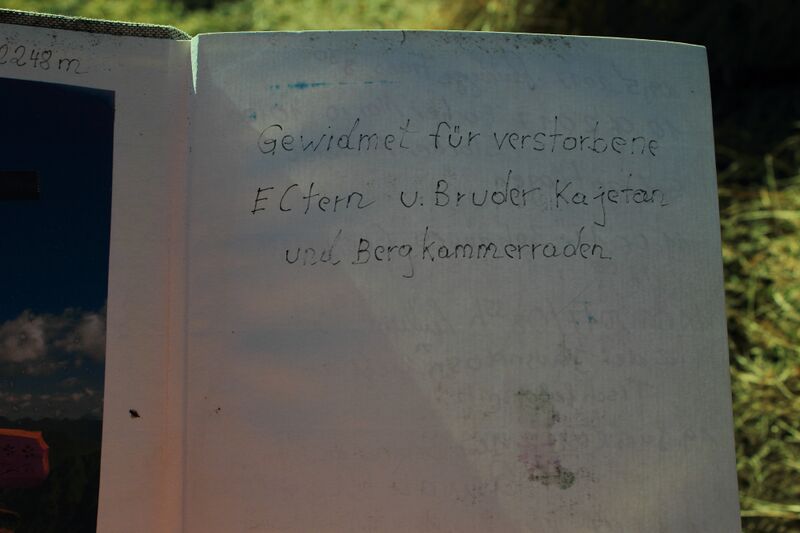 2248m
Gewidmet für verstorbene
Eltern u. Bruder Kajetan
und Bergkammerraden